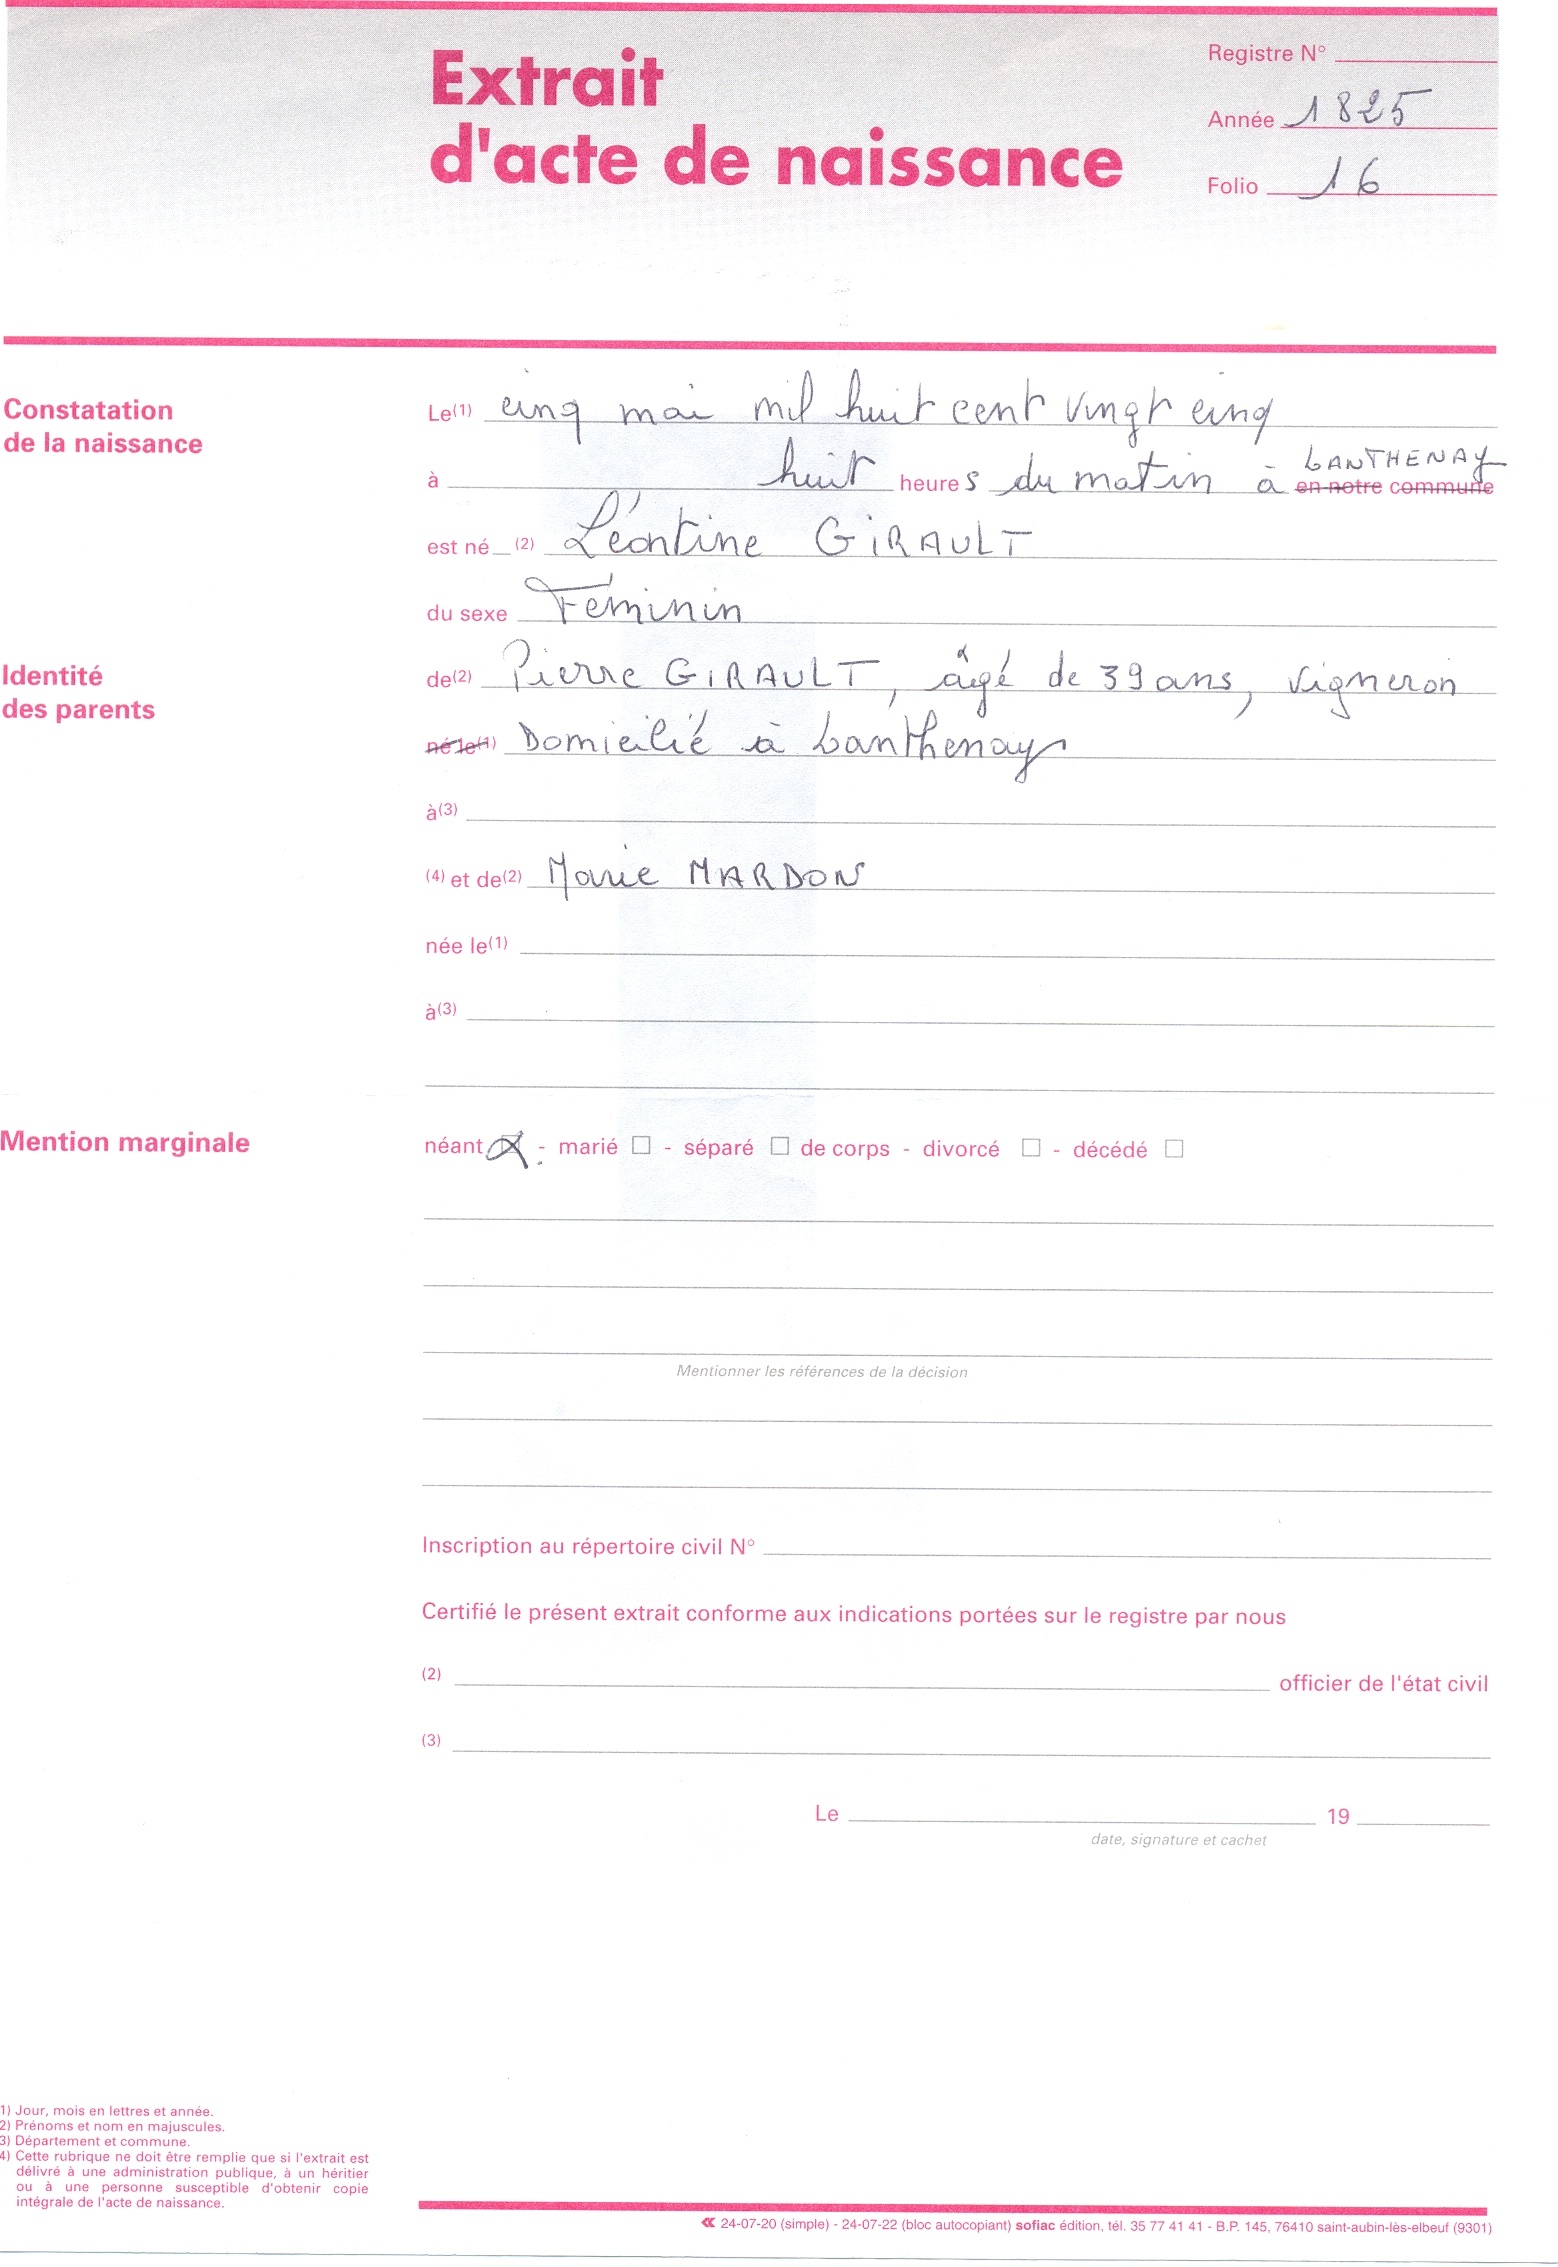 Extrait
d'acte de naissance
Registre N°
Année 1825
Folio 16
Constatation
de la naissance
Le(1) cinq mai mil huit cent vingt cinq
à huit heures du matin à LANTHENAY en notre commune
est né (2) Léontine GIRAULT
du sexe Féminin
Identité
des parents
de(2) Pierre GIRAULT, âgé de 39 ans, vigneron
né le(1) Domicilié à Lanthenay
à(3)
(4) et de(2) Marie MARDON
née le(1)
à(3)
Mention marginale
néant X - marié ☐ - séparé ☐ de corps - divorcé ☐ - décédé ☐
Mentionner les références de la décision
Inscription au répertoire civil N°
Certifié le présent extrait conforme aux indications portées sur le registre par nous
(2) officier de l'état civil
(3)
Le 19
date, signature et cachet
1) Jour, mois en lettres et année.
2) Prénoms et nom en majuscules.
3) Département et commune.
4) Cette rubrique ne doit être remplie que si l'extrait est
délivré à une administration publique, à un héritier
ou à une personne susceptible d'obtenir copie
intégrale de l'acte de naissance.
24-07-20 (simple) - 24-07-22 (bloc autocopiant) sofiac édition, tél. 35 77 41 41 - B.P. 145, 76410 saint-aubin-lès-elbeuf (9301)